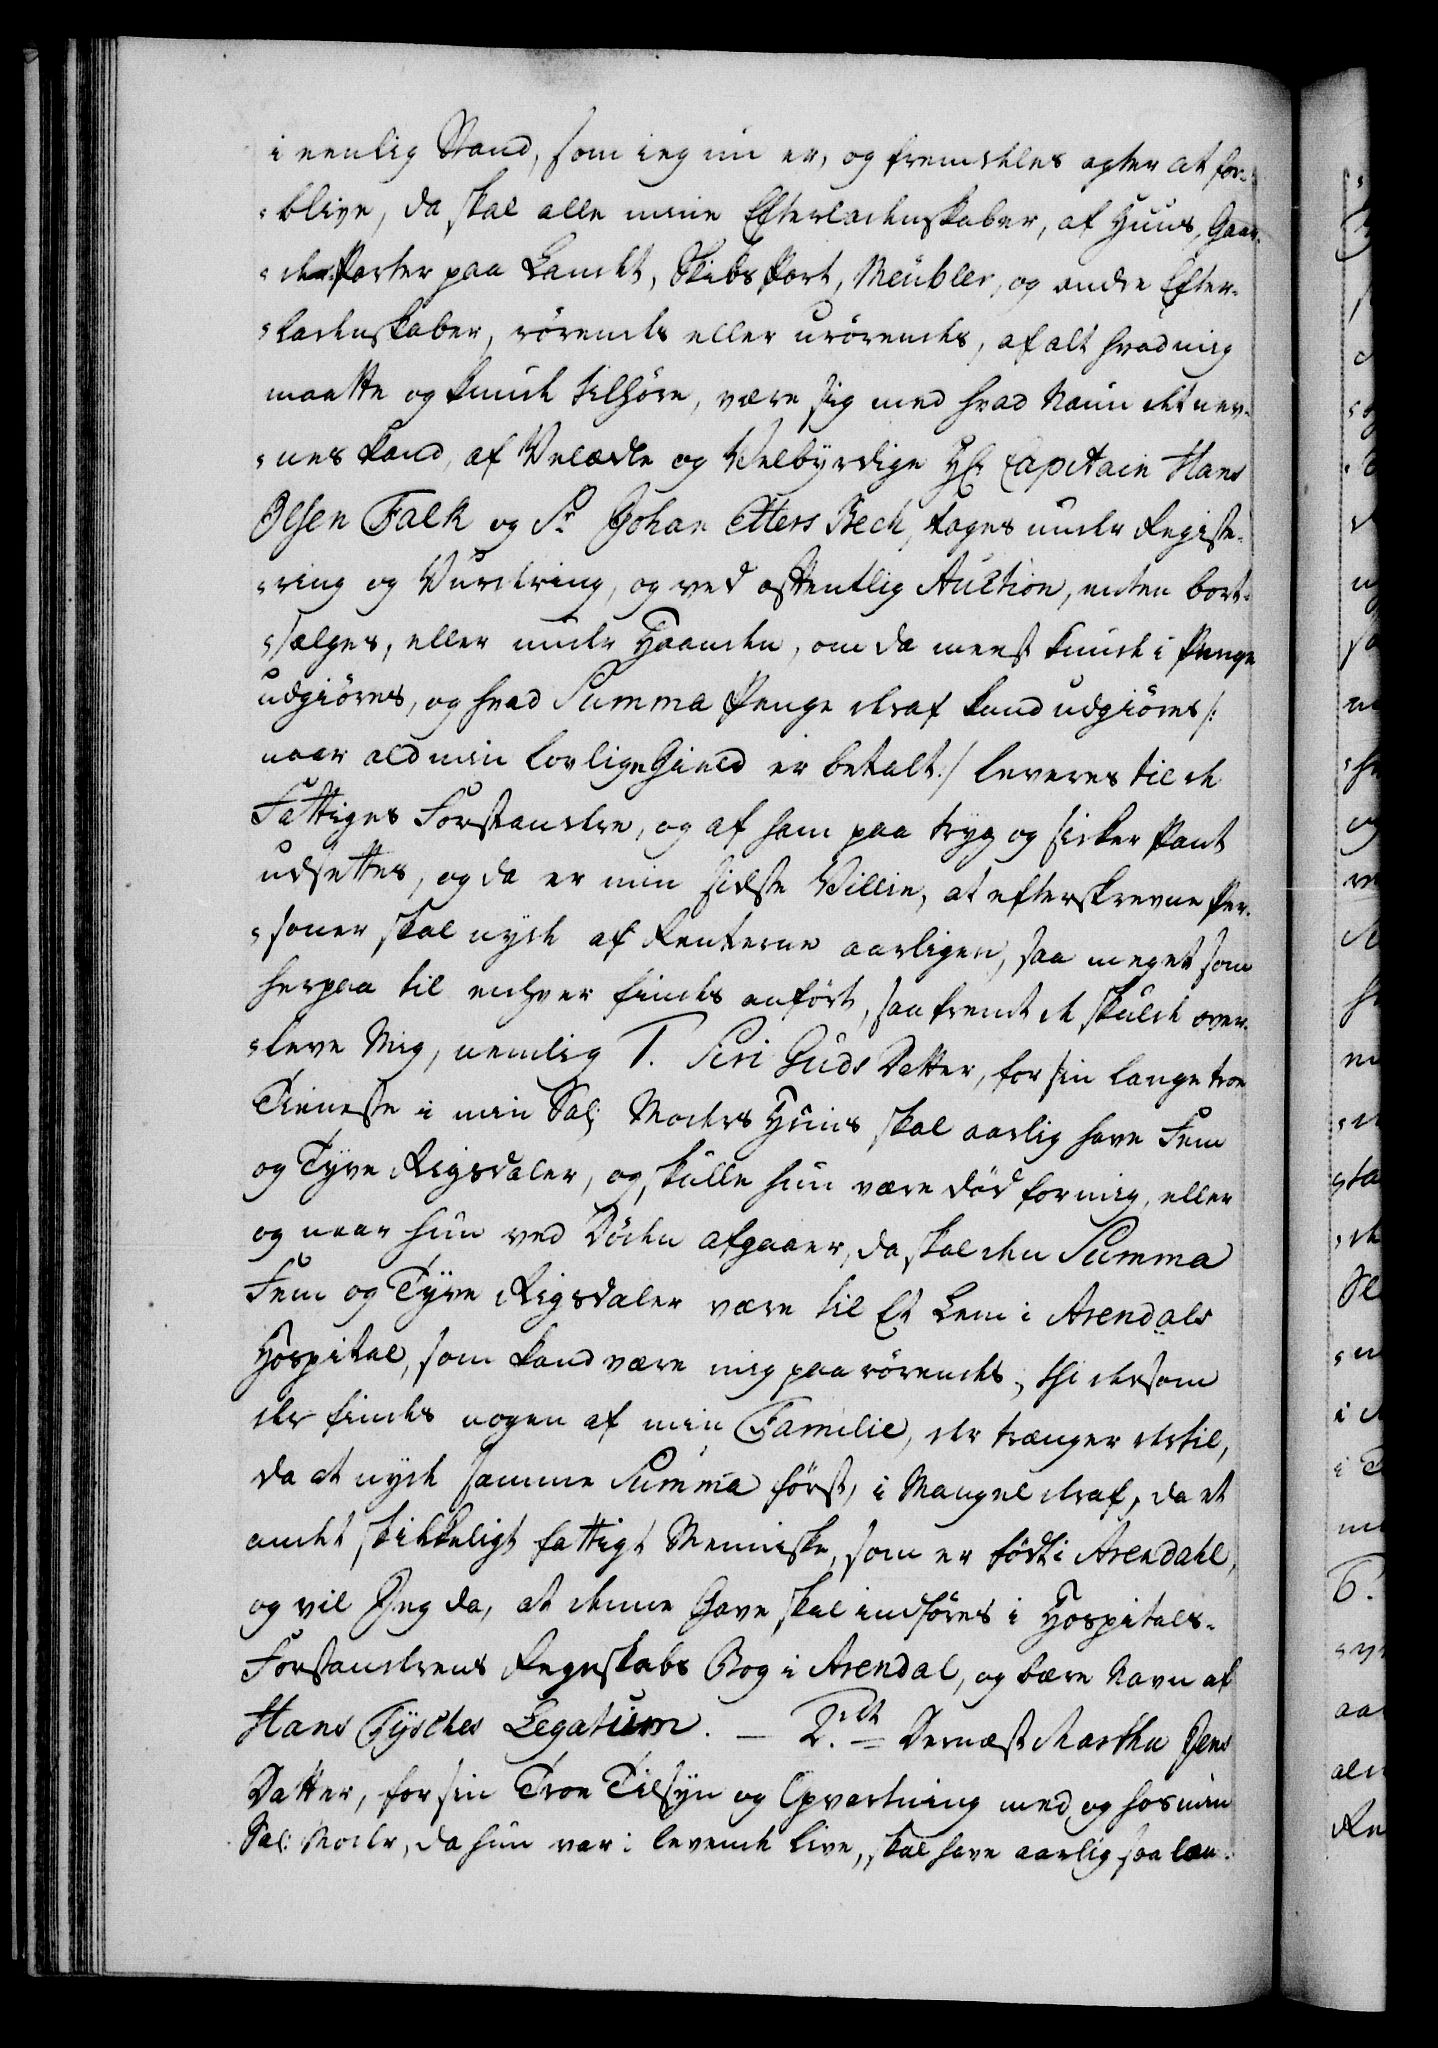 i eenlig Stand, som ieg nu er, og fremdeles agter at for-
blive, da skal alle mine Efterladenskaber, af Huus, Gaar-
de Parter paa Landet, Skibs Part, Meubler, og andre Efter-
ladenskaber, rörendes eller urörendes, af alt hvad mig
maatte og kunde tilhöre, være sig med hvad Navn det nev-
nes kand, af Velædle og Velbyrdige Hr Capitain Hans
Olsen Falk og Sr Johan Etters Bech, tages under Registe-
ring og Vurdering, og ved offentlig Auction, enten bort-
sælges, eller under Haanden, om da meest kunde i Penge
udgiöres, og hvad Summa Penge deraf kand udgiöres /:
naar ald min lovlige Gield er betalt :/ leveres til de
Fattiges Forstandere, og af ham paa tryg og sikker Pant
udsættes, og da er min sidste Villie, at efterskrevne Per-
soner skal nyde af Renterne aarligen, saa meget som
herpaa til enhver findes anfört, saafremt de skulde over-
leve Mig, nemlig 1. Siri Guds Datter, for sin lange troe
Tieneste i min Sal: Moders Huus skal aarlig have Fem
og Tyve Rigsdaler, og skulle hun være död for mig, eller
og naar hun ved Döden afgaaer, da skal den Summa
Fem og Tyve Rigsdaler være til Et Lem i Arendals
Hospital, som kand være mig paarörendes, thi dersom
der findes nogen af min Familie, der trænger dertil,
da at nyde samme Summa först, i Mangel deraf, da et
andet skikkeligt fattigt Menniske, som er födt i Arendahl,
og vil Jeg da, at denne Gave skal indföres i Hospitals-
Forstanderens Regnskabs Bog i Arendal, og bære Navn af
Hans Tysches Legatum. — 2.det Dernæst Martha Jens
Datter, for sin Troe Tilsyn og Opvartning med og hos min
Sal: Moder, da hun var i levende Live, skal have aarlig saa læn-